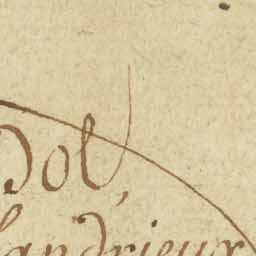 dol,
landrieux